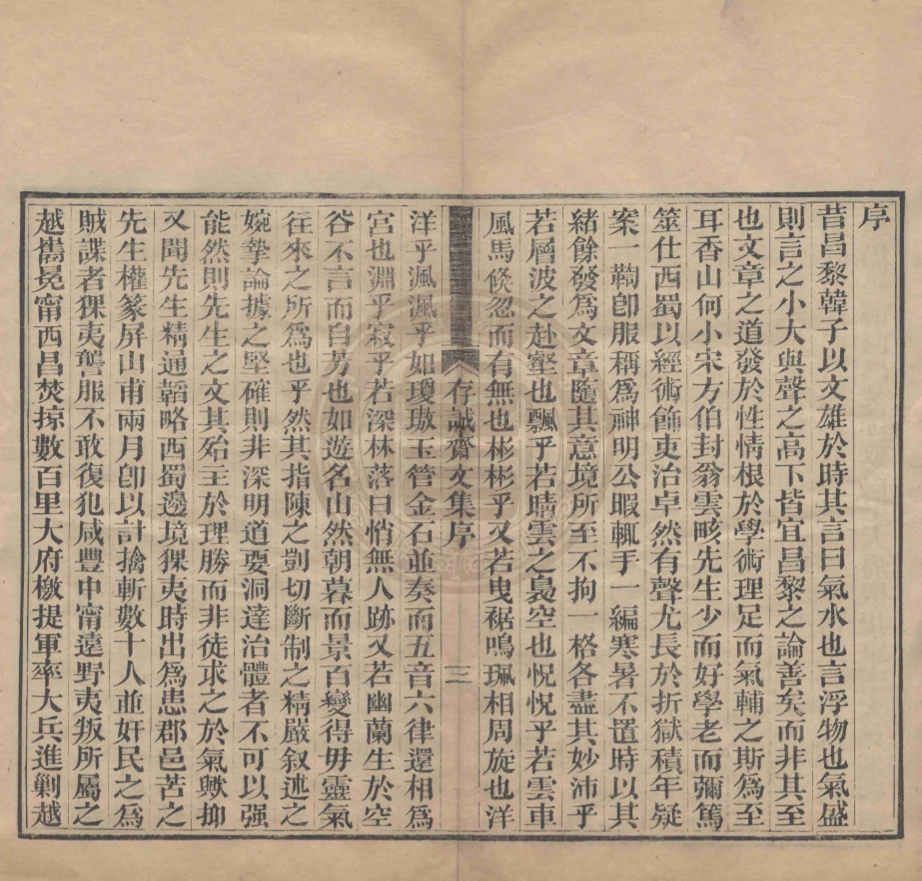 序
昔昌黎韓子以文雄於時其言曰氣水也言浮物也氣盛
則言之小大與聲之高下皆宜昌黎之論善矣而非其至
也文章之道發於性情根於學術理足而氣輔之斯爲至
耳香山何小宋方伯封翁雲畡先生少而好學老而彌篤
筮仕西蜀以經術飾吏治卓然有聲尤長於折獄積年疑
案一鞫卽服稱爲神明公暇輒手一編寒暑不置時以其
緒餘發爲文章隨其意境所至不拘一格各盡其妙沛乎
若層波之赴壑也飄乎若晴雲之裊空也怳怳乎若雲車
風馬倏忽而有無也彬彬乎又若曳裾鳴珮相周旋也洋
存誠齋文集序
三
洋乎渢渢乎如瓊璈玉管金石並奏而五音六律還相爲
宮也淵乎寂乎若深林落日悄無人跡又若幽蘭生於空
谷不言而自芳也如遊名山然朝暮而景百變得毋靈氣
往來之所爲也乎然其指陳之剴切斷制之精嚴叙述之
婉摯論據之堅確則非深明道要洞達治體者不可以强
能然則先生之文其殆主於理勝而非徒求之於氣歟抑
又聞先生精通韜略西蜀邊境猓夷時出爲患郡邑苦之
先生權篆屏山甫兩月卽以計擒斬數十人並奸民之爲
賊諜者猓夷讋服不敢復犯咸豐中甯遠野夷叛所屬之
越巂冕甯西昌焚掠數百里大府檄提軍率大兵進剿越